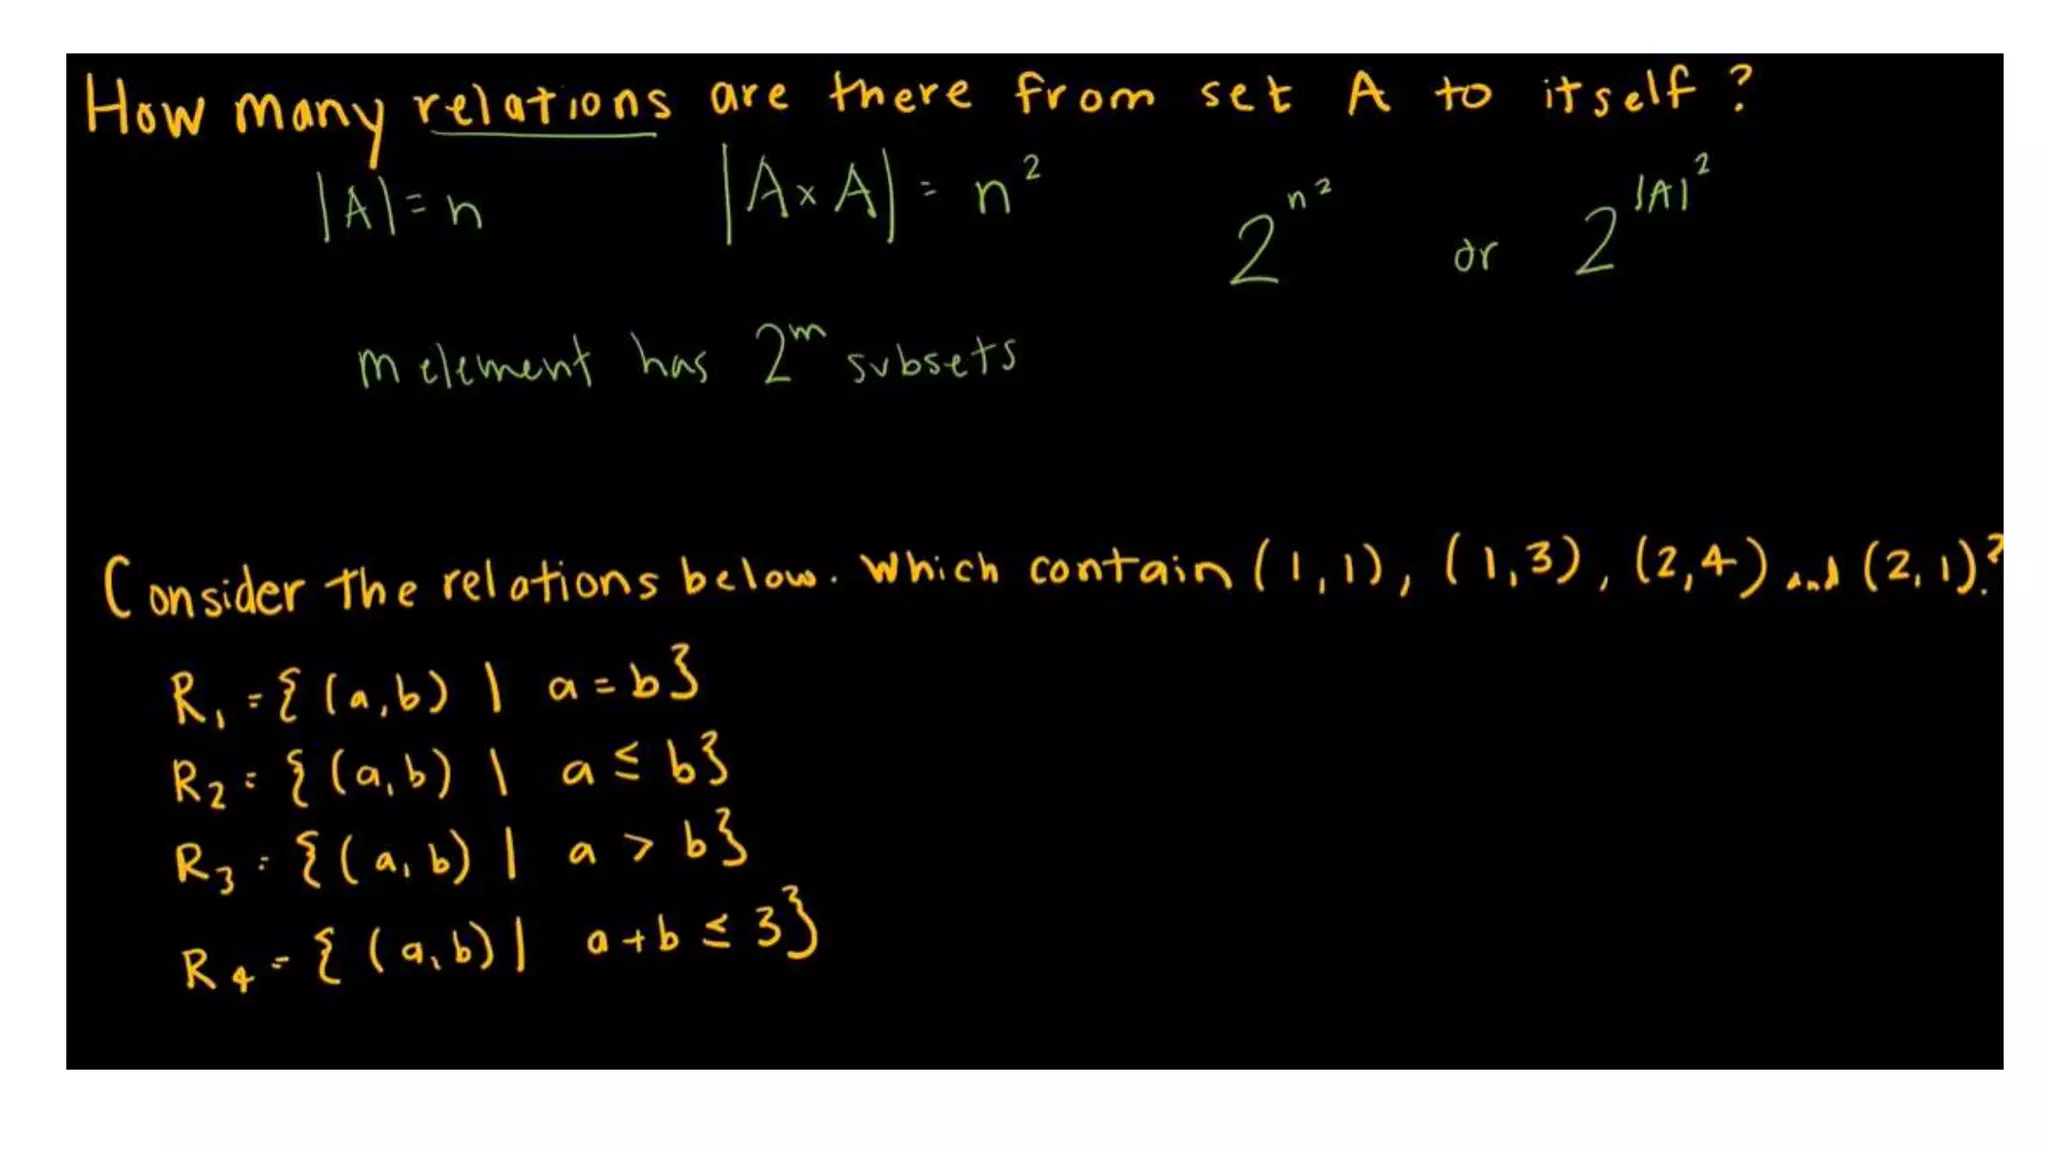 How many relations are there from set A to itself?
|A| = n |A×A| = n² 2^n² or 2^|A|²
m element has 2^m subsets
Consider the relations below. Which contain (1,1), (1,3), (2,4) and (2,1)?
R₁ = {(a,b) | a = b}
R₂ = {(a,b) | a ≤ b}
R₃ = {(a,b) | a > b}
R₄ = {(a,b) | a + b ≤ 3}